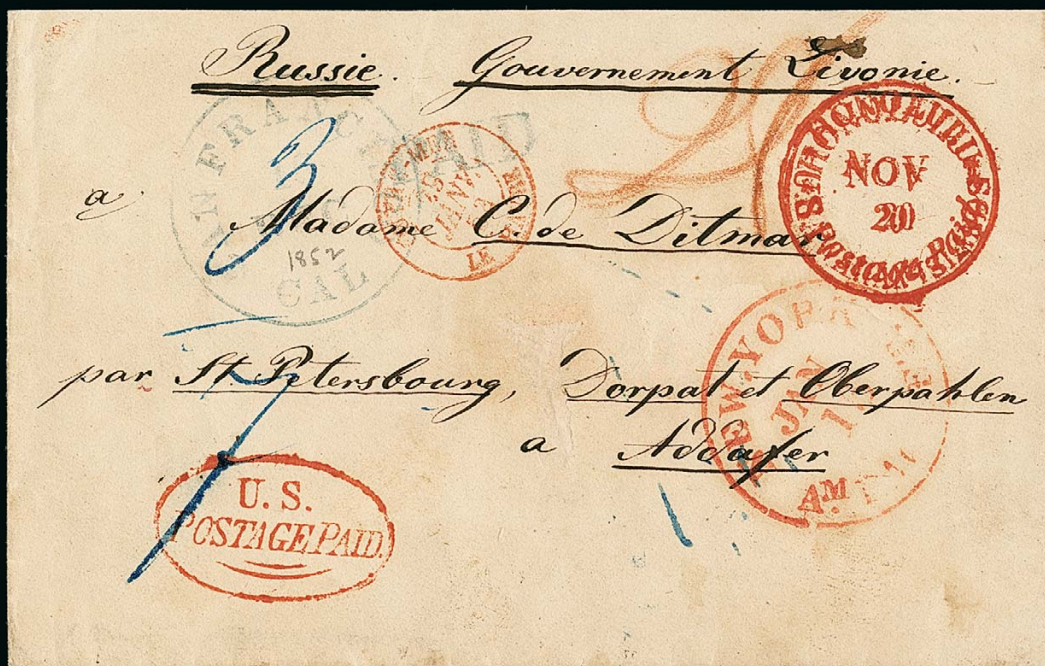 Russie. Gouvernement Livonie.
SAN FRANCISCO
CAL
PAID
1852
3
JANV.
NOV
20
Postage Paid
a Madame C. de Ditmar
NEW-YORK
JAN
AM
par St Petersbourg, Dorpat et Oberpahlen
a Addafer
7
U.S.
POSTAGE PAID.